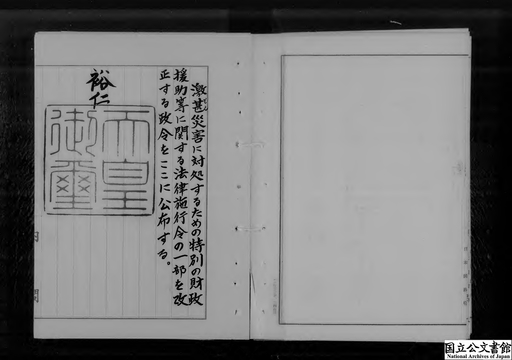 激甚災害に対処するための特別の財政
援助等に関する法律施行令の一部を改
正する政令をここに公布する。
裕仁
天皇
御璽
内閣
国立公文書館
National Archives of Japan